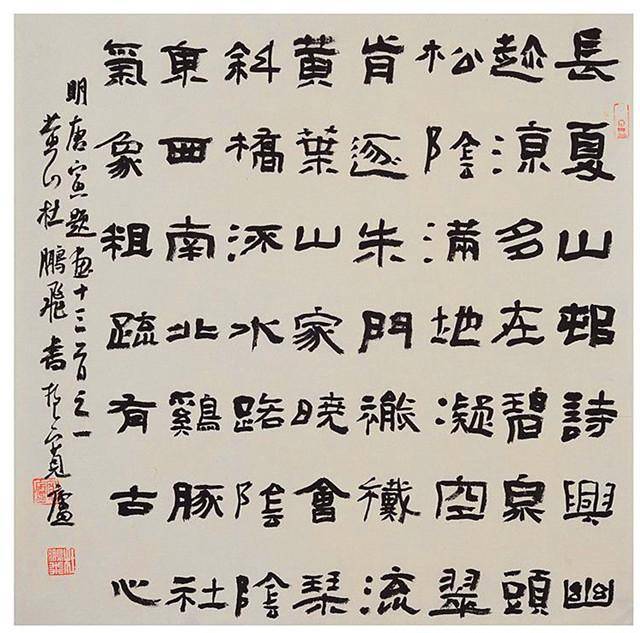 長夏山邨詩興幽
趁涼多在碧泉頭
松陰滿地凝空翠
肯逐朱門褦襶流
黃葉山家曉會琴
斜橋流水路陰陰
東西南北鷄豚社
氣象粗疏有古心
明唐寅題畫十三首之一
黃山杜鵬飛書於寬廬